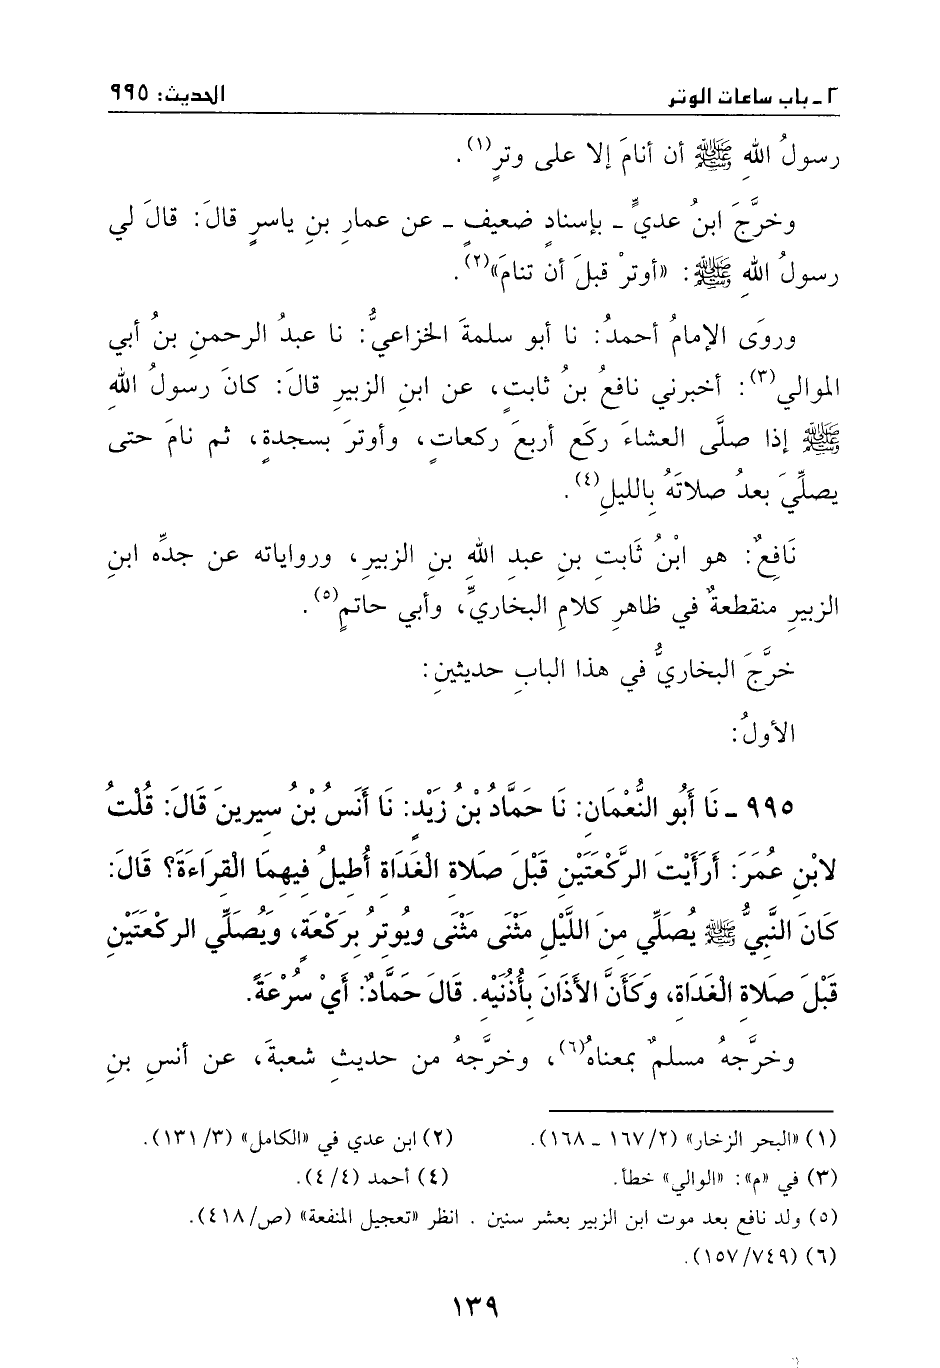 ٢ - باب ساعات الوتر
الحديث: ٩٩٥
رسولُ اللهِ ﷺ أن أنامَ إلا على وترٍ(١).
وخرَّجَ ابنُ عديٍّ - بإسنادٍ ضعيفٍ - عن عمارِ بنِ ياسرٍ قالَ: قالَ لي
رسولُ اللهِ ﷺ: «أوترْ قبلَ أن تنامَ»(٢).
وروَى الإمامُ أحمدُ: نا أبو سلمةَ الخزاعيُّ: نا عبدُ الرحمنِ بنُ أبي
الموالي(٣): أخبرني نافعُ بنُ ثابتٍ، عن ابنِ الزبيرِ قالَ: كانَ رسولُ اللهِ
ﷺ إذا صلَّى العشاءَ ركَع أربعَ ركعاتٍ، وأوترَ بسجدةٍ، ثم نامَ حتى
يصلِّيَ بعدُ صلاتَهُ بِالليلِ(٤).
نَافِعٌ: هو ابْنُ ثَابتِ بنِ عبدِ اللهِ بنِ الزبيرِ، ورواياته عن جدِّه ابنِ
الزبيرِ منقطعةٌ في ظاهرِ كلامِ البخاريِّ، وأبي حاتمٍ(٥).
خرَّجَ البخاريُّ في هذا البابِ حديثينِ:
الأولُ:
٩٩٥ - نَا أَبُو النُّعْمَانِ: نَا حَمَّادُ بْنُ زَيْدٍ: نَا أَنَسُ بْنُ سِيرِينَ قَالَ: قُلْتُ
لابْنِ عُمَرَ: أَرَأَيْتَ الرَّكْعَتَيْنِ قَبْلَ صَلاةِ الْغَدَاةِ أُطِيلُ فِيهِمَا الْقِرَاءَةَ؟ قَالَ:
كَانَ النَّبِيُّ ﷺ يُصَلِّي مِنَ اللَّيْلِ مَثْنَى مَثْنَى ويُوتِرُ بِرَكْعَةٍ، وَيُصَلِّي الركْعَتَيْنِ
قَبْلَ صَلاةِ الْغَدَاةِ، وَكَأَنَّ الأَذَانَ بِأُذُنَيْهِ. قَالَ حَمَّادٌ: أَيْ سُرْعَةً.
وخرَّجهُ مسلمٌ بمعناهُ(٦)، وخرَّجهُ من حديثِ شعبةَ، عن أنسِ بنِ
(١) «البحر الزخار» (٢/ ١٦٧ - ١٦٨).
(٢) ابن عدي في «الكامل» (٣/ ١٣١).
(٣) في «م»: «الوالي» خطأ.
(٤) أحمد (٤/ ٤).
(٥) ولد نافع بعد موت ابن الزبير بعشر سنين . انظر «تعجيل المنفعة» (ص/ ٤١٨).
(٦) (٧٤٩/ ١٥٧).
١٣٩